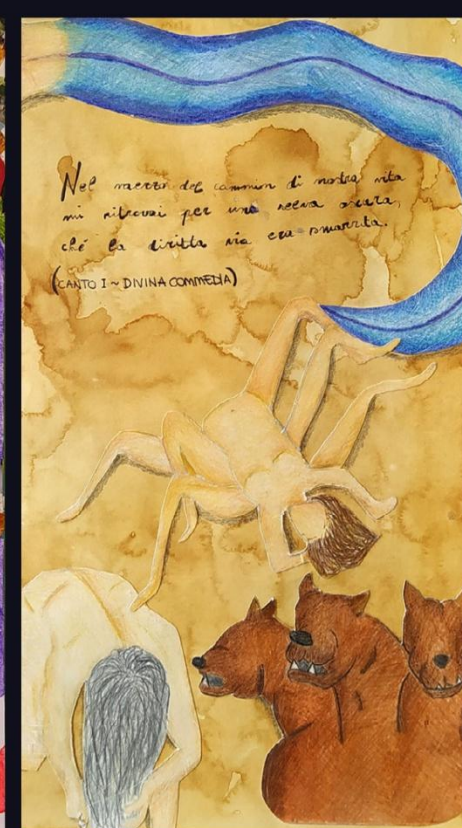 Nel mezzo del cammin di nostra vita
mi ritrovai per una selva oscura,
ché la diritta via era smarrita.
(CANTO I ~ DIVINA COMMEDIA)